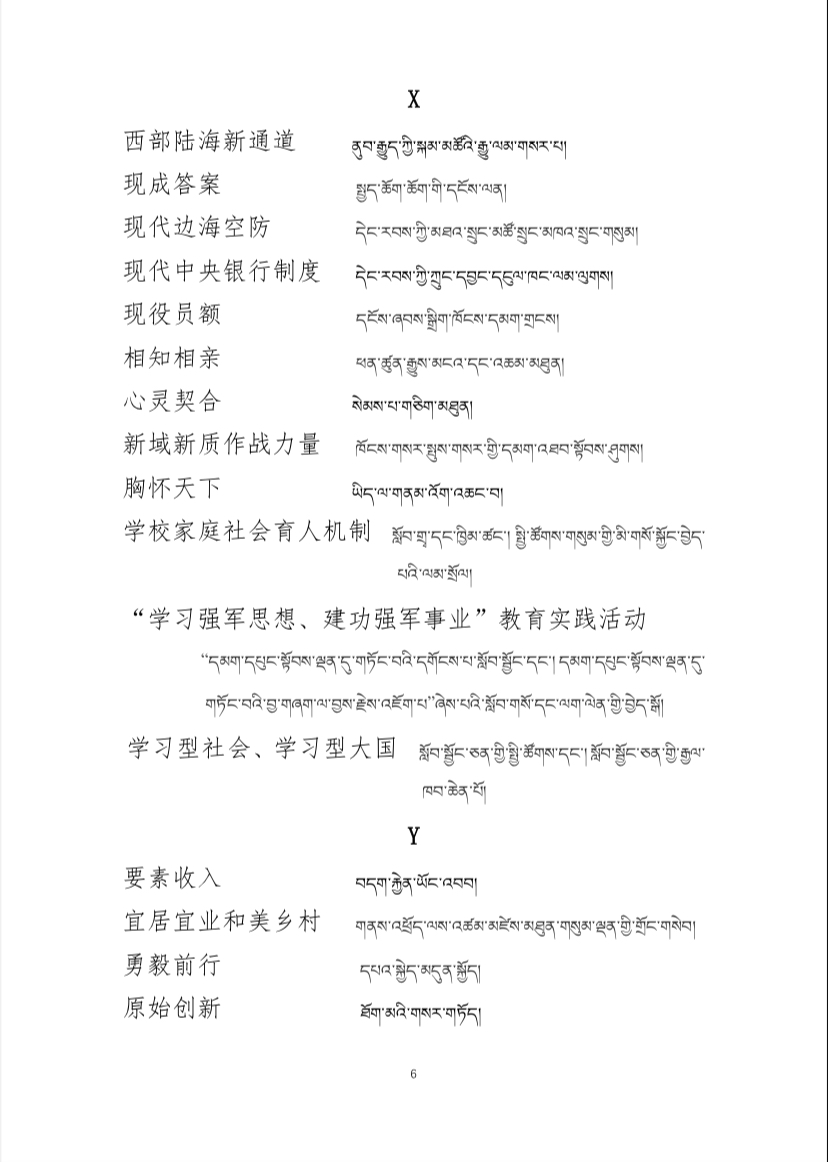 X
西部陆海新通道 ནུབ་རྒྱུད་ཀྱི་སྐམ་མཚོའི་རྒྱུ་ལམ་གསར་པ།
现成答案 སྤྱད་ཆོག་ཆོག་གི་དངོས་ལན།
现代边海空防 དེང་རབས་ཀྱི་མཐའ་སྲུང་མཚོ་སྲུང་མཁའ་སྲུང་གསུམ།
现代中央银行制度 དེང་རབས་ཀྱི་ཀྲུང་དབྱང་དངུལ་ཁང་ལམ་ལུགས།
现役员额 དངོས་ཞབས་སྒྲིག་ཁོངས་དམག་གྲངས།
相知相亲 ཕན་ཚུན་རྒྱུས་མངའ་དང་འཆམ་མཐུན།
心灵契合 སེམས་པ་གཅིག་མཐུན།
新域新质作战力量 ཁོངས་གསར་སྤུས་གསར་གྱི་དམག་འཐབ་སྟོབས་ཤུགས།
胸怀天下 ཡིད་ལ་གནམ་འོག་འཆང་བ།
学校家庭社会育人机制 སློབ་གྲྭ་དང་ཁྱིམ་ཚང་། སྤྱི་ཚོགས་གསུམ་གྱི་མི་གསོ་སྐྱོང་བྱེད་
པའི་ལམ་སྲོལ།
“学习强军思想、建功强军事业”教育实践活动
“དམག་དཔུང་སྟོབས་ལྡན་དུ་གཏོང་བའི་དགོངས་པ་སློབ་སྦྱོང་དང་། དམག་དཔུང་སྟོབས་ལྡན་དུ་
གཏོང་བའི་བྱ་གཞག་ལ་བྱས་རྗེས་འཇོག་པ”ཞེས་པའི་སློབ་གསོ་དང་ལག་ལེན་གྱི་བྱེད་སྒོ།
学习型社会、学习型大国 སློབ་སྦྱོང་ཅན་གྱི་སྤྱི་ཚོགས་དང་། སློབ་སྦྱོང་ཅན་གྱི་རྒྱལ་
ཁབ་ཆེན་པོ།
Y
要素收入 བདག་རྐྱེན་ཡོང་འབབ།
宜居宜业和美乡村 གནས་འཕྲོད་ལས་འཚམ་མཛེས་མཐུན་གསུམ་ལྡན་གྱི་གྲོང་གསེབ།
勇毅前行 དཔའ་སྐྱེད་མདུན་སྐྱོད།
原始创新 ཐོག་མའི་གསར་གཏོད།
6